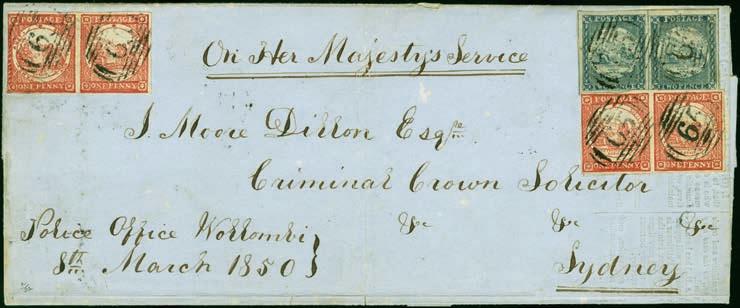 POSTAGE POSTAGE
ONE PENNY ONE PENNY
POSTAGE POSTAGE
TWO PENCE TWO PENCE
POSTAGE POSTAGE
ONE PENNY ONE PENNY
On Her Majesty's Service
J. Moore Dillon Esqre
Criminal Crown Solicitor
&c &c &c
Sydney
Police Office Wollombi
8th March 1850